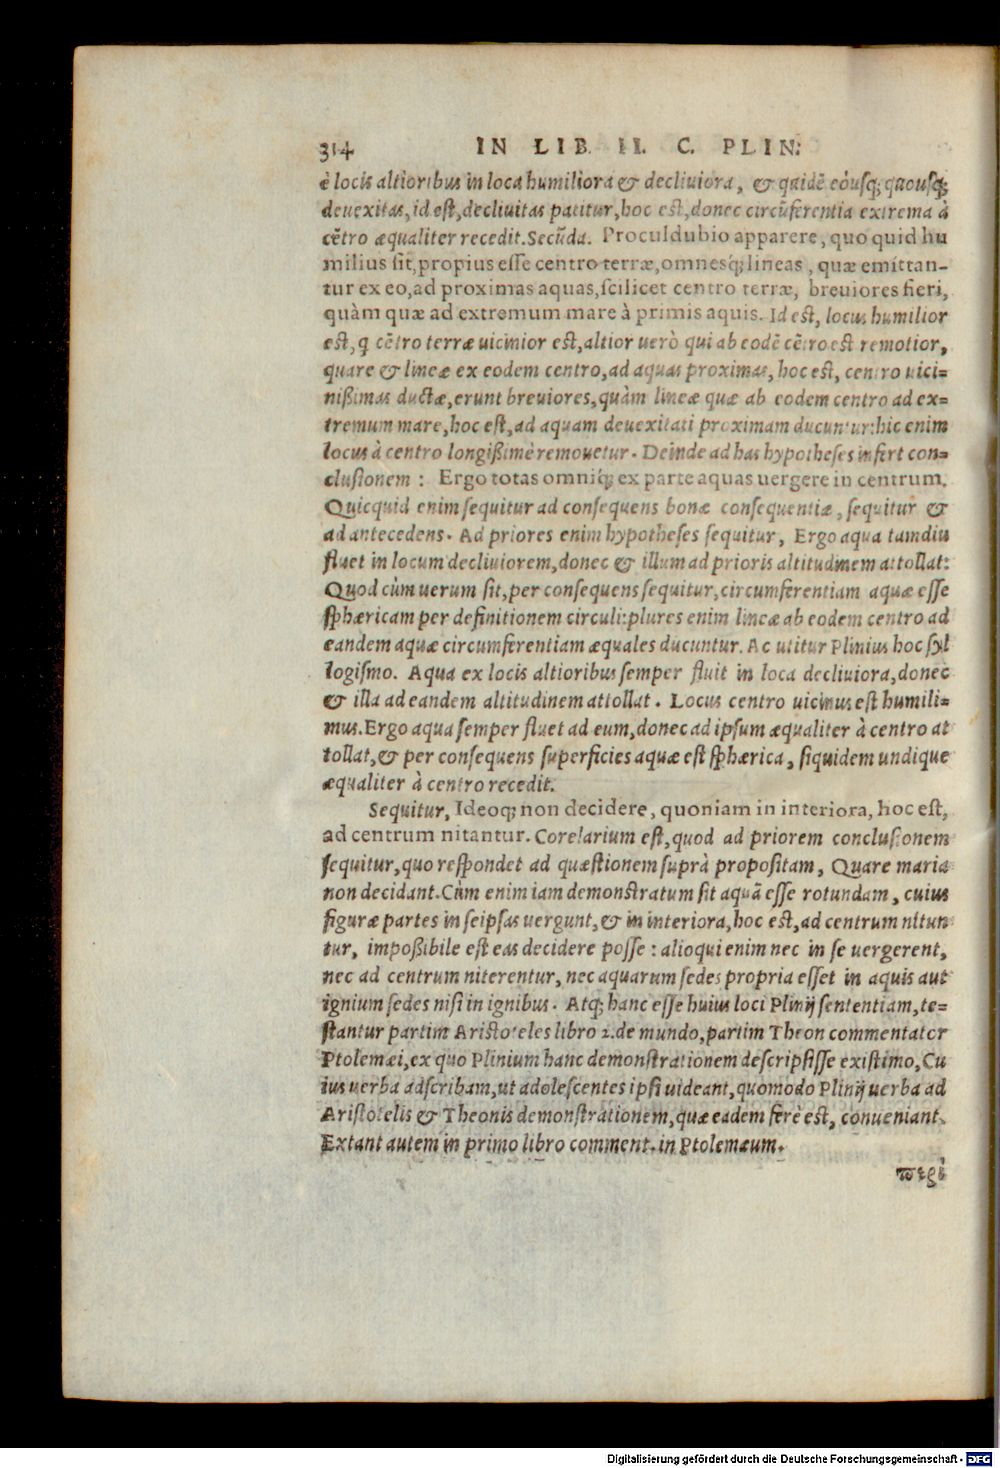 314 IN LIB. II. C. PLIN:
è locis altioribus in loca humiliora & decliuiora, & quidē eòusq; quousq;
deuexitas, id est, decliuitas patitur, hoc est, donec circūferentia extrema à
cētro æqualiter recedit. Secūda. Proculdubio apparere, quo quid hu
milius sit, propius esse centro terræ, omnesq́; lineas, quæ emittan-
tur ex eo, ad proximas aquas, scilicet centro terræ, breuiores fieri,
quàm quæ ad extremum mare à primis aquis. Id est, locus humilior
est, q cētro terræ uicinior est, altior uerò qui ab eodē cētro est remotior,
quare & lineæ ex eodem centro, ad aquas proximas, hoc est, centro uici=
nißimas ductæ, erunt breuiores, quàm lineæ quæ ab eodem centro ad ex=
tremum mare, hoc est, ad aquam deuexitati proximam ducuntur: hic enim
locus à centro longißimè remouetur. Deinde ad has hypotheses infert con=
clusionem: Ergo totas omniq́; ex parte aquas uergere in centrum.
Quicquid enim sequitur ad consequens bonæ consequentiæ, sequitur &
ad antecedens. Ad priores enim hypotheses sequitur, Ergo aqua tamdiu
fluet in locum decliuiorem, donec & illum ad prioris altitudinem attollat:
Quod cùm uerum sit, per consequens sequitur, circumferentiam aquæ esse
sphæricam per definitionem circuli: plures enim lineæ ab eodem centro ad
eandem aquæ circumferentiam æquales ducuntur. Ac utitur Plinius hoc syl
logismo. Aqua ex locis altioribus semper fluit in loca decliuiora, donec
& illa ad eandem altitudinem attollat. Locus centro uicinus est humili=
mus. Ergo aqua semper fluet ad eum, donec ad ipsum æqualiter à centro at
tollat, & per consequens superficies aquæ est sphærica, siquidem undique
æqualiter à centro recedit.
Sequitur, Ideoq; non decidere, quoniam in interiora, hoc est,
ad centrum nitantur. Corelarium est, quod ad priorem conclusionem
sequitur, quo respondet ad quæstionem suprà propositam, Quare maria
non decidant. Cùm enim iam demonstratum sit aquā esse rotundam, cuius
figuræ partes in seipsas uergunt, & in interiora, hoc est, ad centrum nitun
tur, impoßibile est eas decidere posse: alioqui enim nec in se uergerent,
nec ad centrum niterentur, nec aquarum sedes propria esset in aquis aut
ignium sedes nisi in ignibus. Atq; hanc esse huius loci Plinij sententiam, te=
stantur partim Aristoteles libro 2. de mundo, partim Theon commentator
Ptolemæi, ex quo Plinium hanc demonstrationem descripsisse existimo, Cu
ius uerba adscribam, ut adolescentes ipsi uideant, quomodo Plinij uerba ad
Aristotelis & Theonis demonstrationem, quæ eadem ferè est, conueniant.
Extant autem in primo libro comment. in Ptolemæum.
περὶ
Digitalisierung gefördert durch die Deutsche Forschungsgemeinschaft - DFG